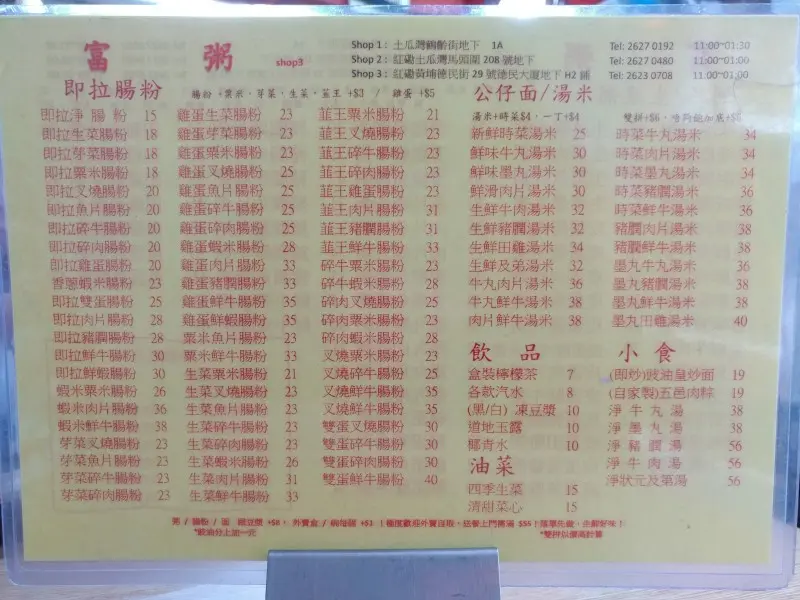 富 粥 shop3
Shop 1： 土瓜灣鶴齡街地下 1A Tel: 2627 0192 11:00~01:30
Shop 2： 紅磡土瓜灣馬頭圍 208 號地下 Tel: 2627 0480 11:00~01:00
Shop 3： 紅磡黃埔德民街 29 號德民大廈地下 H2 鋪 Tel: 2623 0708 11:00~01:00
即拉腸粉
腸粉 +粟米，芽菜，生菜，韮王 +$3 / 雞蛋 +$5
即拉淨腸粉 15
即拉生菜腸粉 18
即拉芽菜腸粉 18
即拉粟米腸粉 18
即拉叉燒腸粉 20
即拉魚片腸粉 20
即拉碎牛腸粉 20
即拉碎肉腸粉 20
即拉雞蛋腸粉 20
香蔥蝦米腸粉 23
即拉雙蛋腸粉 25
即拉肉片腸粉 28
即拉豬膶腸粉 28
即拉鮮牛腸粉 30
即拉鮮蝦腸粉 30
蝦米粟米腸粉 26
蝦米肉片腸粉 36
蝦米鮮牛腸粉 38
芽菜叉燒腸粉 23
芽菜魚片腸粉 23
芽菜碎牛腸粉 23
芽菜碎肉腸粉 23
雞蛋生菜腸粉 23
雞蛋芽菜腸粉 23
雞蛋粟米腸粉 23
雞蛋叉燒腸粉 25
雞蛋魚片腸粉 25
雞蛋碎牛腸粉 25
雞蛋碎肉腸粉 25
雞蛋蝦米腸粉 28
雞蛋肉片腸粉 33
雞蛋豬膶腸粉 33
雞蛋鮮牛腸粉 35
雞蛋鮮蝦腸粉 35
粟米魚片腸粉 23
粟米鮮牛腸粉 33
生菜粟米腸粉 21
生菜叉燒腸粉 23
生菜魚片腸粉 23
生菜碎牛腸粉 23
生菜碎肉腸粉 23
生菜蝦米腸粉 26
生菜肉片腸粉 31
生菜鮮牛腸粉 33
韮王粟米腸粉 21
韮王叉燒腸粉 23
韮王碎牛腸粉 23
韮王碎肉腸粉 23
韮王雞蛋腸粉 23
韮王肉片腸粉 31
韮王豬膶腸粉 31
韮王鮮牛腸粉 33
碎牛粟米腸粉 23
碎牛蝦米腸粉 28
碎肉叉燒腸粉 25
碎肉粟米腸粉 23
碎肉蝦米腸粉 28
叉燒粟米腸粉 23
叉燒碎牛腸粉 25
叉燒鮮蝦腸粉 35
叉燒鮮牛腸粉 35
雙蛋叉燒腸粉 30
雙蛋碎牛腸粉 30
雙蛋碎肉腸粉 30
雙蛋鮮牛腸粉 40
公仔面/湯米
湯米+時菜$4，一丁+$4 雙拼+$6，
新鮮時菜湯米 25
鮮味牛丸湯米 30
鮮味墨丸湯米 30
鮮滑肉片湯米 30
生鮮牛肉湯米 32
生鮮豬膶湯米 32
生鮮田雞湯米 34
生鮮及弟湯米 32
牛丸肉片湯米 36
牛丸鮮牛湯米 38
肉片鮮牛湯米 38
時菜牛丸湯米 34
時菜肉片湯米 34
時菜墨丸湯米 34
時菜豬膶湯米 36
時菜鮮牛湯米 36
豬膶肉片湯米 38
豬膶鮮牛湯米 38
墨丸牛丸湯米 36
墨丸豬膶湯米 38
墨丸鮮牛湯米 38
墨丸田雞湯米 40
飲品
盒裝檸檬茶 7
各款汽水 8
(黑/白) 凍豆漿 10
道地玉露 10
椰青水 10
油菜
四季生菜 15
清甜菜心 15
小食
(即炒)豉油皇炒面 19
(自家製)五邑肉粽 19
淨牛丸湯 38
淨墨丸湯 38
淨豬膶湯 56
淨牛肉湯 56
淨狀元及第湯 56
粥 / 腸粉 / 面 跟豆漿 +$8， 外賣盒 / 碗每個 +$1 ！極度歡迎外賣自取，送餐上門需滿 $55！落單先做，出餐好味！
*豉油分上加一元 *雙拼以價高計算